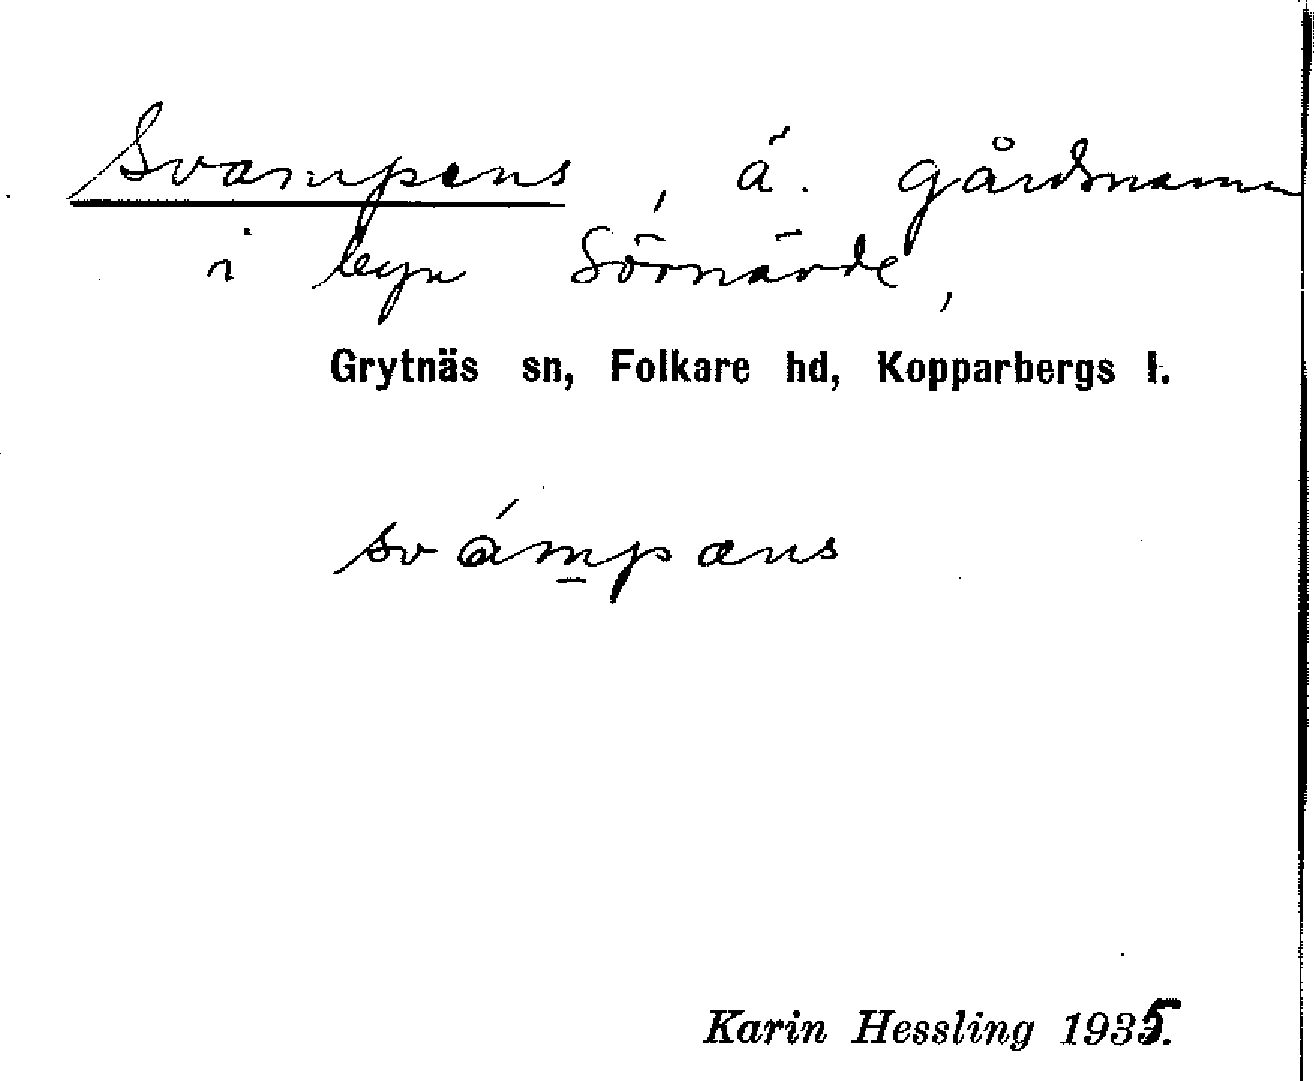 Svampens, ä. gårdsnamn
i byn Sörnärde,
Grytnäs sn, Folkare hd, Kopparbergs l.
svámpæns
Karin Hessling 1935.